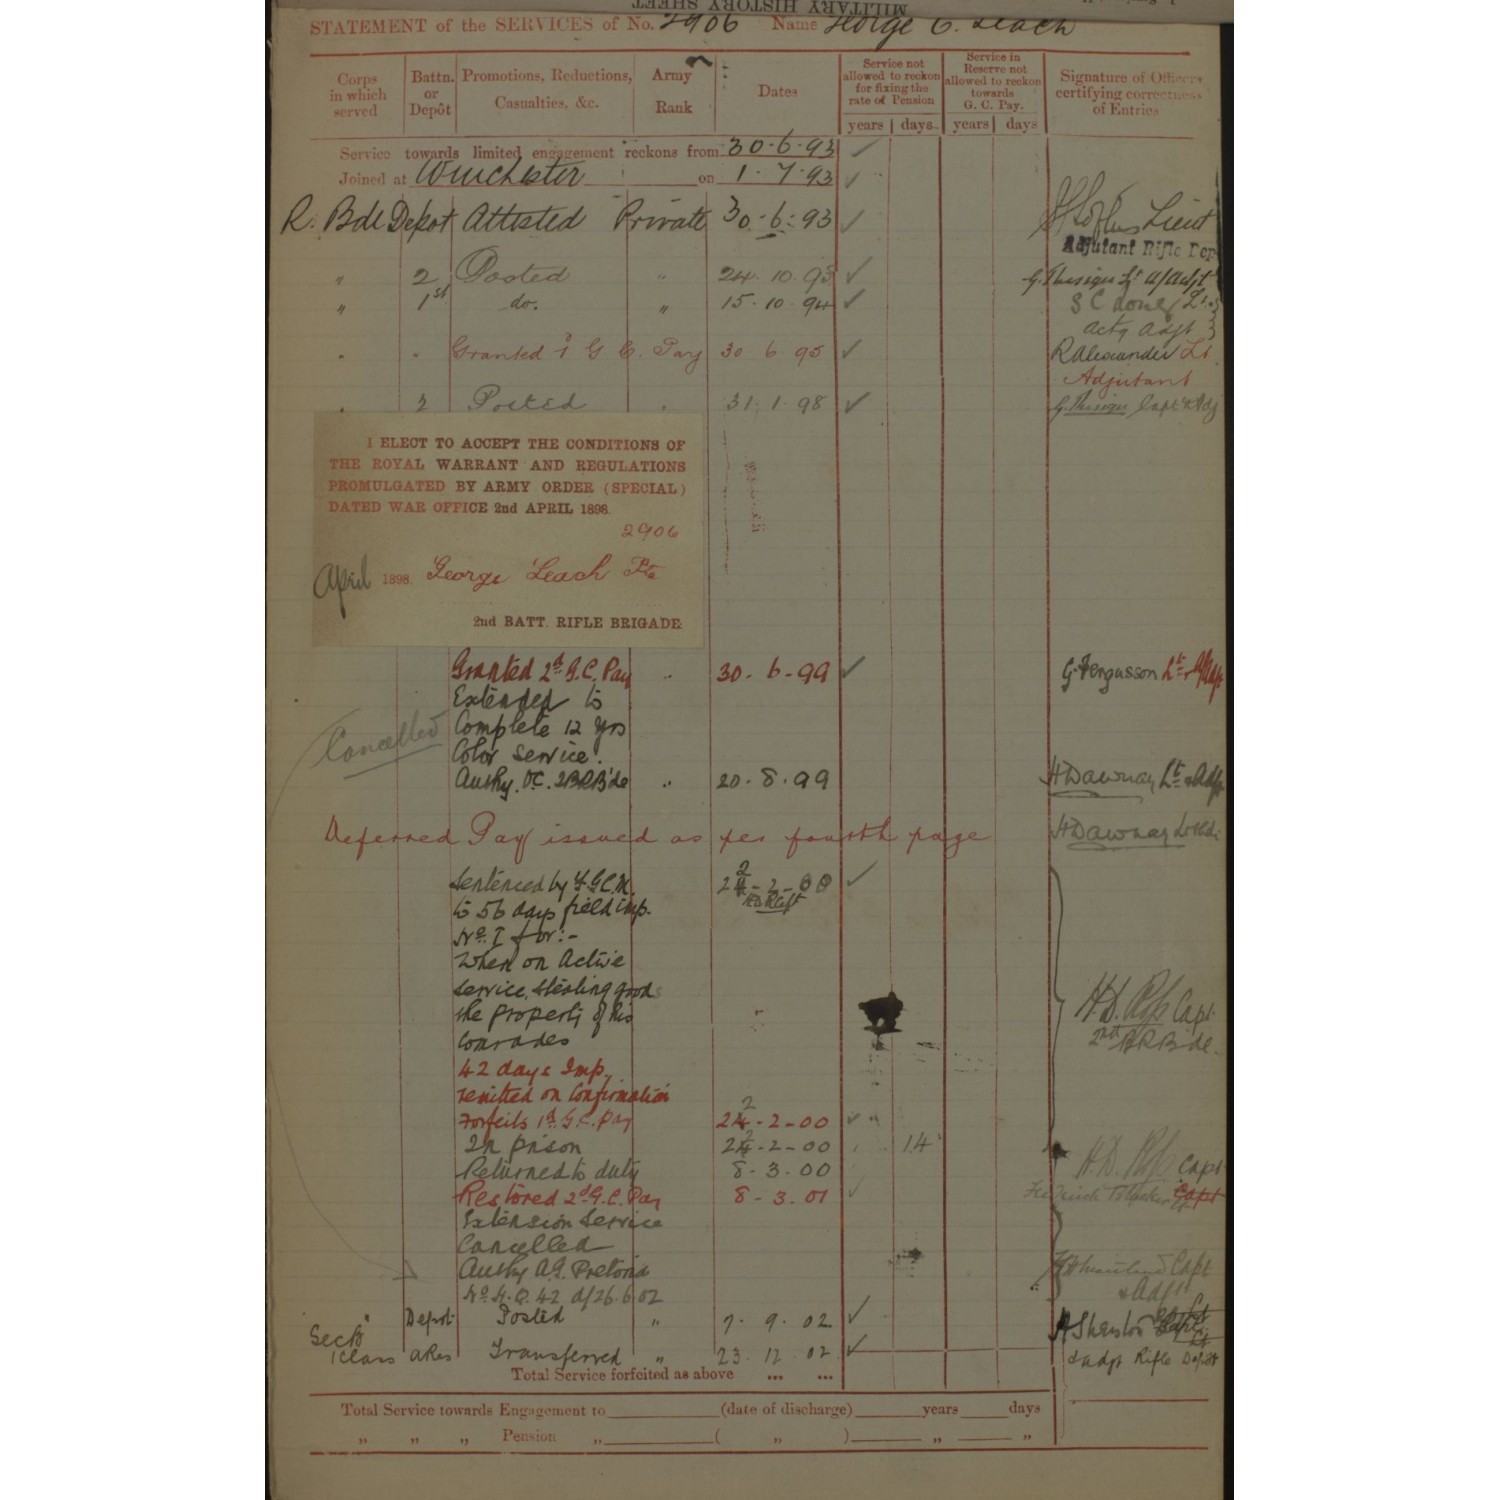 MILITARY HISTORY SHEET
STATEMENT of the SERVICES of No. 2906 Name George C. Leach
Corps in which served
Battn. or Depôt
Promotions, Reductions, Casualties, &c.
Army Rank
Dates
Service not allowed to reckon for fixing the rate of Pension
Service in Reserve not allowed to reckon towards G. C. Pay.
Signature of Officers certifying correctness of Entries
years days years days
Service towards limited engagement reckons from 30.6.93
Joined at Winchester on 1.7.93
R. Bde Depot Attested Private 30.6.93 Lieut
Adjutant Rifle Dep
" 2 Posted " 24.10.93 G. Thesiger Lt a/Adjt
" 1st do. " 15.10.94 Lt.
actg Adjt
" " Granted 1 G C. Pay 30 6 95 R Alexander Lt
Adjutant
" 2 Posted " 31.1.98 G. Thesiger Capt & Adj
I ELECT TO ACCEPT THE CONDITIONS OF
THE ROYAL WARRANT AND REGULATIONS
PROMULGATED BY ARMY ORDER (SPECIAL)
DATED WAR OFFICE 2nd APRIL 1898.
2906
April 1898. George Leach Pte
2nd BATT. RIFLE BRIGADE
Granted 2d G.C. Pay " 30.6.99 G. Fergusson Lt a/Adjt
Extended to
Complete 12 Yrs
Cancelled
Color Service.
Authy. O.C. 2BRB'de " 20.8.99 H Dawnay Lt & Adjt
Deferred Pay issued as per fourth page H Dawnay Lt
Sentenced by F.G.C.M. 22-2-00
to 56 days field imp.
No. I for:-
When on Active
Service, stealing goods
the property of his
Comrades H.D. Ross Capt
2nd B R Bde
42 days Imp.
remitted on Confirmation
Forfeits 1st G.C. Pay 22-2-00
In prison 22-2-00 14
Returned to duty 8-3-00 H.D. Ross Capt
Restored 2d G.C. Pay 8-3-01 Capt
Extension Service
Cancelled
Authy A.G. Pretoria Capt
No. H.O. 42 d/26.6.02 & Adjt
Depot Posted " 7.9.02 A Sherston Capt
Sec B
1 Class A Res Transferred " 23.12.02 & Adjt Rifle Depôt
Total Service forfeited as above ... ...
Total Service towards Engagement to (date of discharge) years days
" " " Pension " ( " ) " "